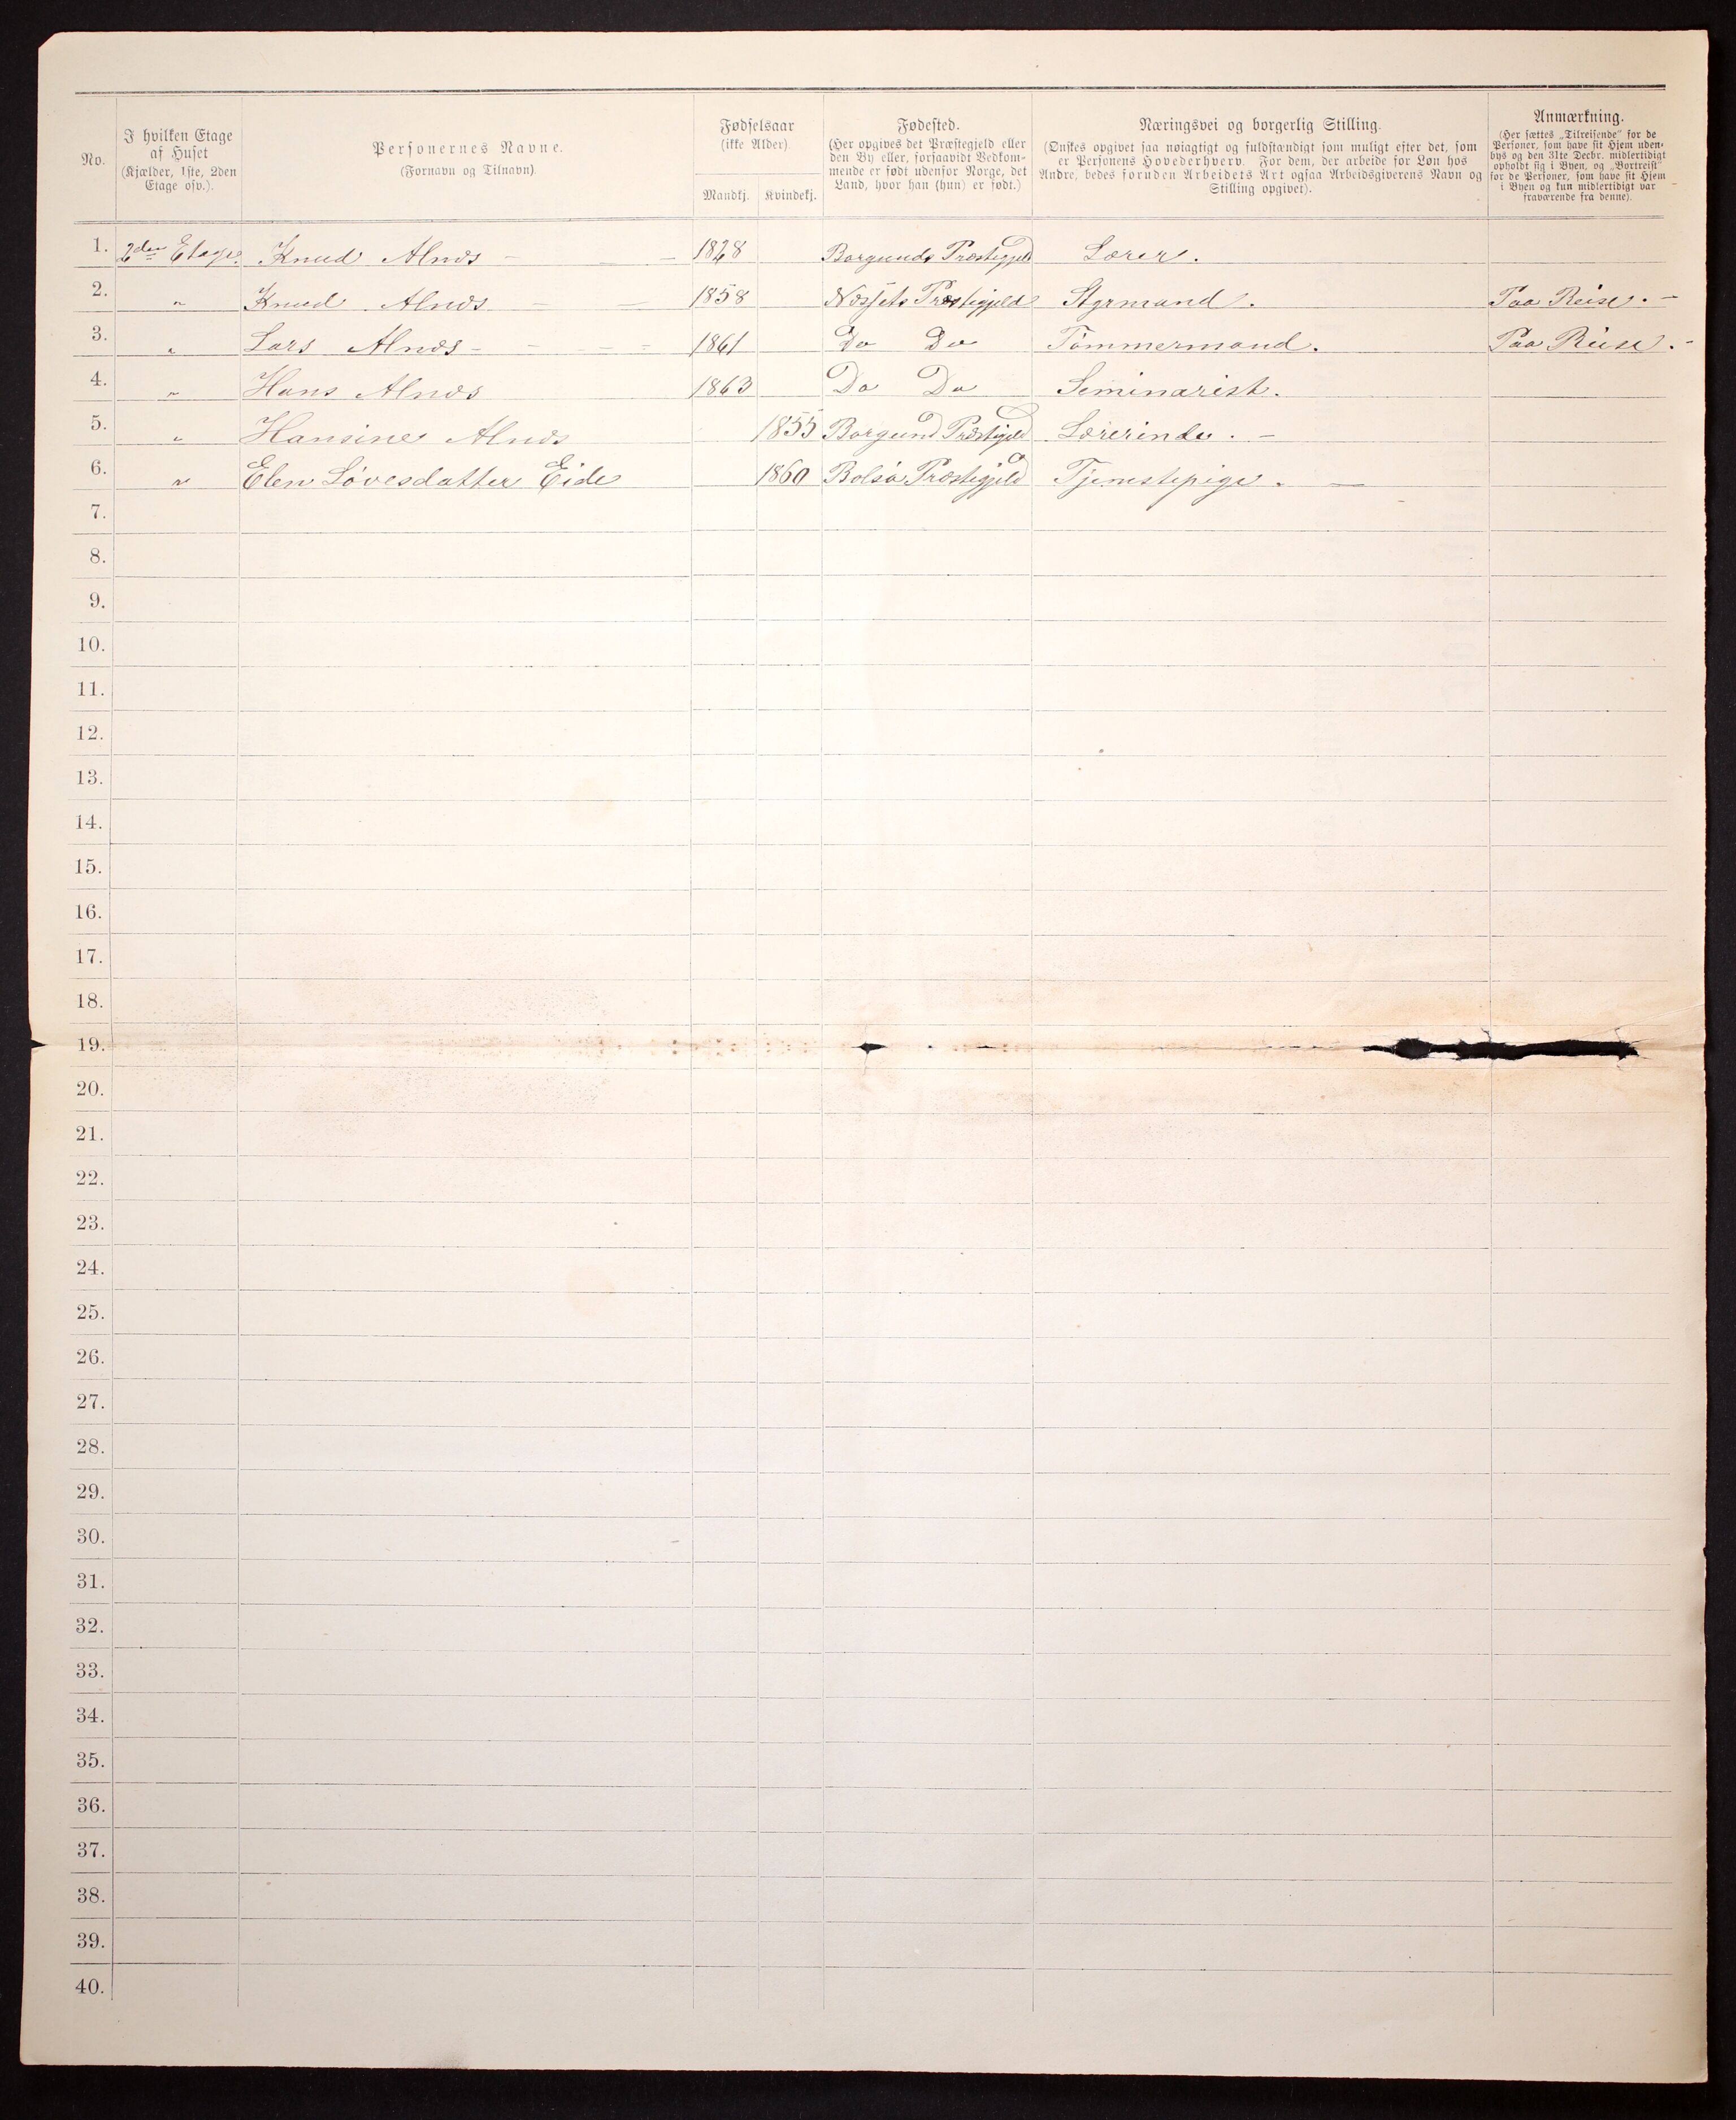 No.
I hvilken Etage
af Huset
(Kjælder, 1ste, 2den
Etage osv.).
Personernes Navne.
(Fornavn og Tilnavn).
Fødselsaar
(ikke Alder)
Mandkj. Kvindekj.
Fødested.
(Her opgives det Præstegjeld eller
den By eller, forsaavidt Vedkom-
mende er født udenfor Norge, det
Land, hvor han (hun) er født.)
Næringsvei og borgerlig Stilling.
(Ønskes opgivet saa nøiagtigt og fuldstændigt som muligt efter det, som
er Personens Hovederhverv. For dem, der arbeide for Løn hos
Andre, bedes foruden Arbeidets Art ogsaa Arbeidsgiverens Navn og
Stilling opgivet).
Anmærkning.
(Her sættes „Tilreisende" for de
Personer, som have sit Hjem uden-
bys og den 31te Decbr. midlertidigt
opholdt sig i Byen, og „Bortreist"
for de Personer, som have sit Hjem
i Byen og kun midlertidigt var
fraværende fra denne).
1. 2den Etage. Knud Alnæs 1828 Borgunds Præstegjeld Lærer.
2. " Knud Alnæs 1858 Næssets Præstegjeld Styrmand. Paa Reise. -
3. " Lars Alnæs 1861 Do Do Tømmermand. Paa Reise. -
4. " Hans Alnæs 1863 Do Do Seminarist.
5. " Hansine Alnæs 1855 Borgund Præstegjeld Lærerinde. -
6. " Elen Lovesdatter Eide 1860 Bolsø Præstegjeld Tjenestepige. -
7.
8.
9.
10.
11.
12.
13.
14.
15.
16.
17.
18.
19.
20.
21.
22.
23.
24.
25.
26.
27.
28.
29.
30.
31.
32.
33.
34.
35.
36.
37.
38.
39.
40.